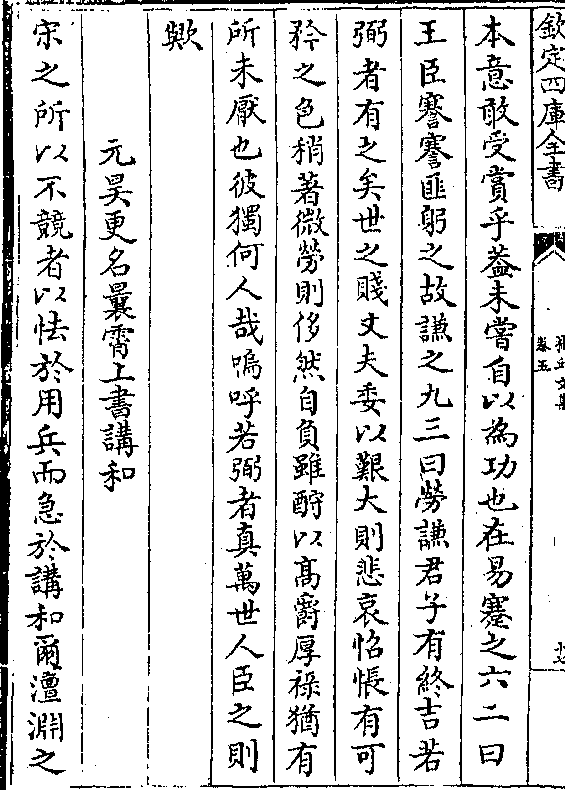 欽定四庫全書
卷五
十七
本意敢受賞乎葢未嘗自以為功也在易蹇之六二曰
王臣謇謇匪躬之故謙之九三曰勞謙君子有終吉若
弼者有之矣世之賤丈夫委以艱大則悲哀怊悵有可
矜之色稍著微勞則侈然自負雖酧以高爵厚祿猶有
所未厭也彼獨何人哉嗚呼若弼者真萬世人臣之則
歟
元昊更名曩霄上書講和
宋之所以不競者以怯於用兵而急於講和爾澶淵之